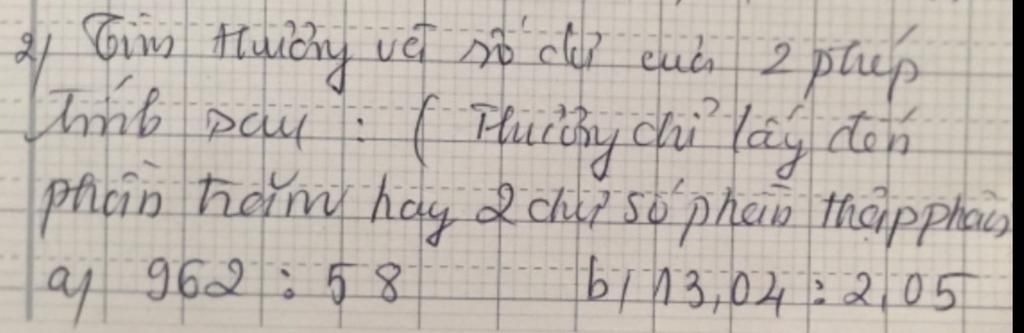 2) Tìm thương và số dư của 2 phép
tính sau : ( Thương chỉ lấy đến
phần trăm hay 2 chữ số phần thập phân
a) 962 : 58 b) 13,04 : 2,05